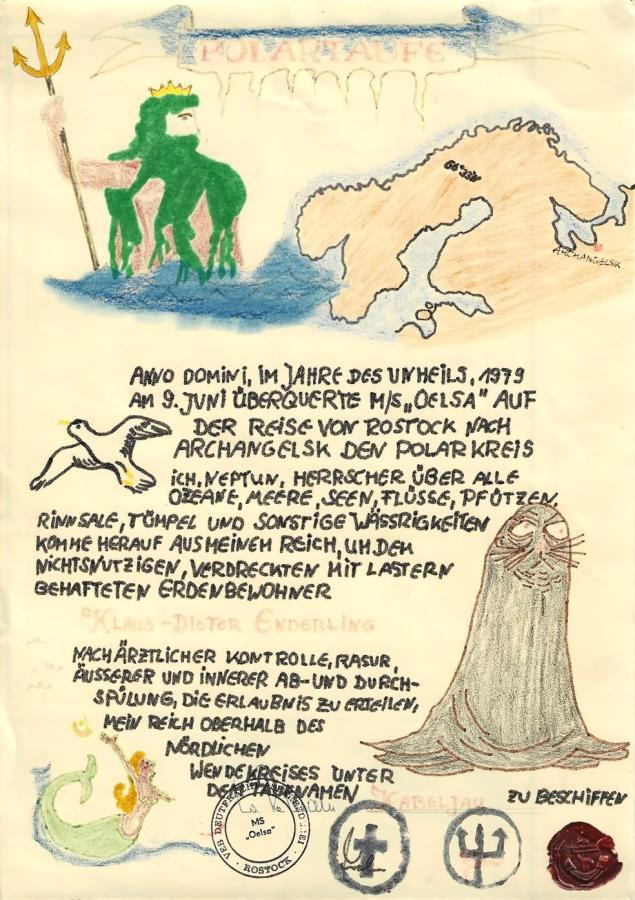 POLARTAUFE
66°33N
ARCHANGELSK
ANNO DOMINI, IM JAHRE DES UNHEILS, 1979
AM 9. JUNI ÜBERQUERTE M/S „OELSA" AUF
DER REISE VON ROSTOCK NACH
ARCHANGELSK DEN POLARKREIS
ICH, NEPTUN, HERRSCHER ÜBER ALLE
OZEANE, MEERE, SEEN, FLÜSSE, PFÜTZEN,
RINNSALE, TÜMPEL UND SONSTIGE WÄSSRIGKEITEN
KOMME HERAUF AUS MEINEM REICH, UM DEM
NICHTSNUTZIGEN, VERDRECKTEN MIT LASTERN
BEHAFTETEN ERDENBEWOHNER
KLAUS-DIETER ENDERLING
NACH ÄRZTLICHER KONTROLLE, RASUR,
ÄUSSERER UND INNERER AB- UND DURCH-
SPÜLUNG, DIE ERLAUBNIS ZU ERTEILEN,
MEIN REICH OBERHALB DES
NÖRDLICHEN
WENDEKREISES UNTER
DEM TAUFNAMEN KABELJAU ZU BESCHIFFEN
VEB DEUTFRACHT SEEREEDEREI
MS
„Oelsa"
ROSTOCK